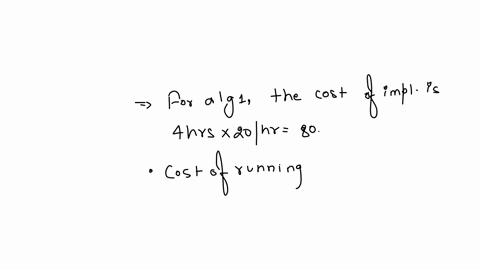 => For alg1, the cost of impl. is
4hrs x 20|hr = 80.
• Cost of running